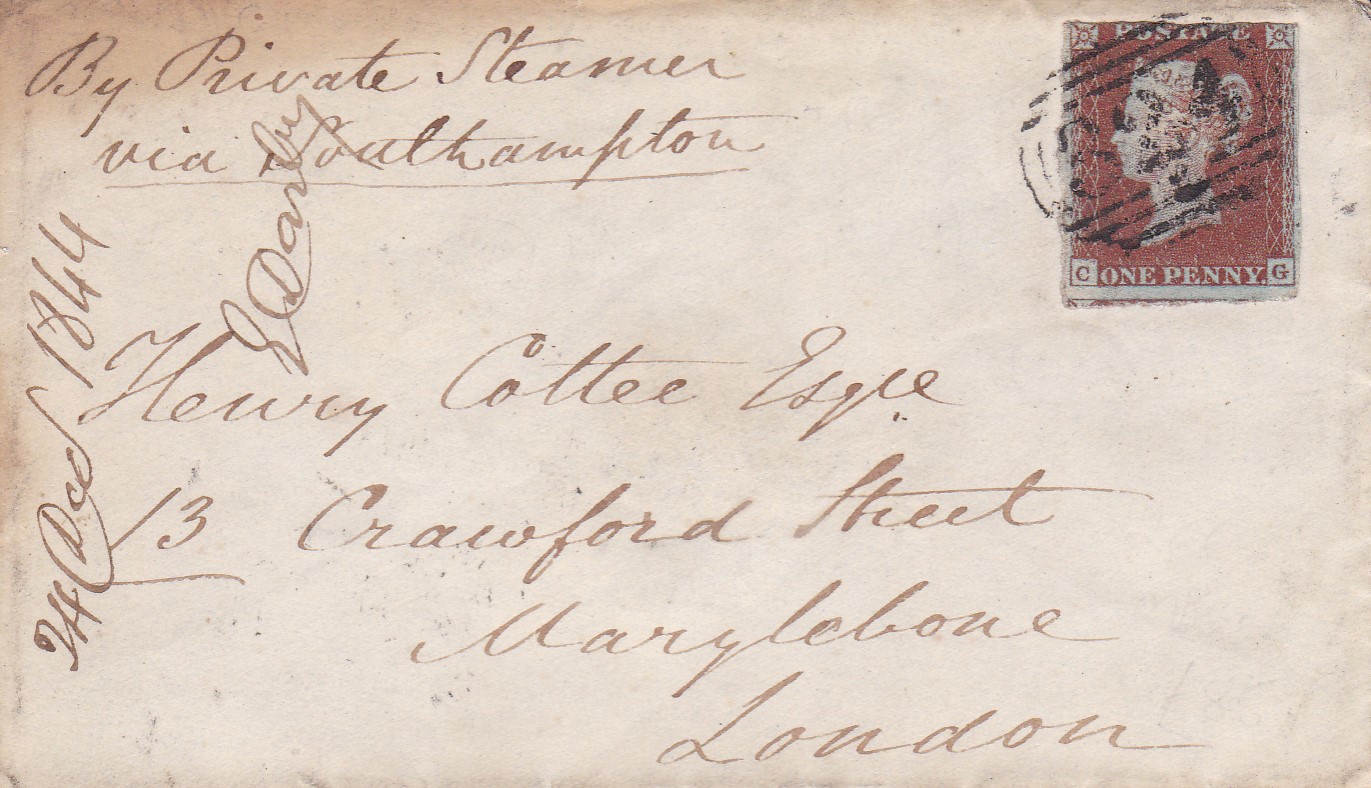 By Private Steamer
via Southampton
POSTAGE
C ONE PENNY. G
24 Decr 1844
E Darby
Henry Cottee Esqre
13 Crawford Street
Marylebone
London